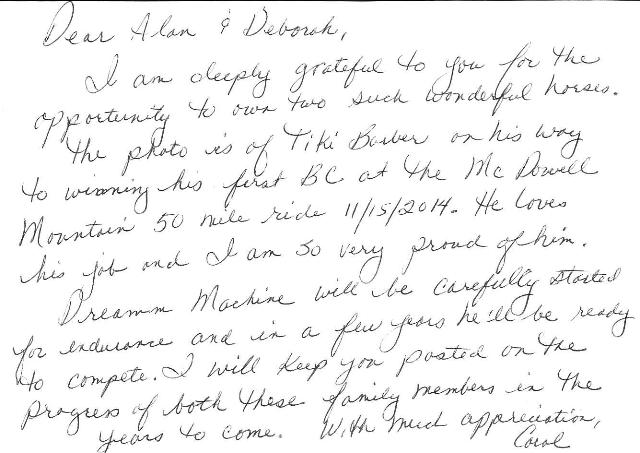 Dear Alan & Deborah,
I am deeply grateful to you for the
opportunity to own two such wonderful horses.
The photo is of Tiki Barber on his way
to winning his first BC at the McDowell
Mountain 50 mile ride 11/15/2014. He loves
his job and I am so very proud of him.
Dreamm Machine will be carefully started
for endurance and in a few years he'll be ready
to compete. I will keep you posted on the
progress of both these family members in the
years to come. With much appreciation,
Carol